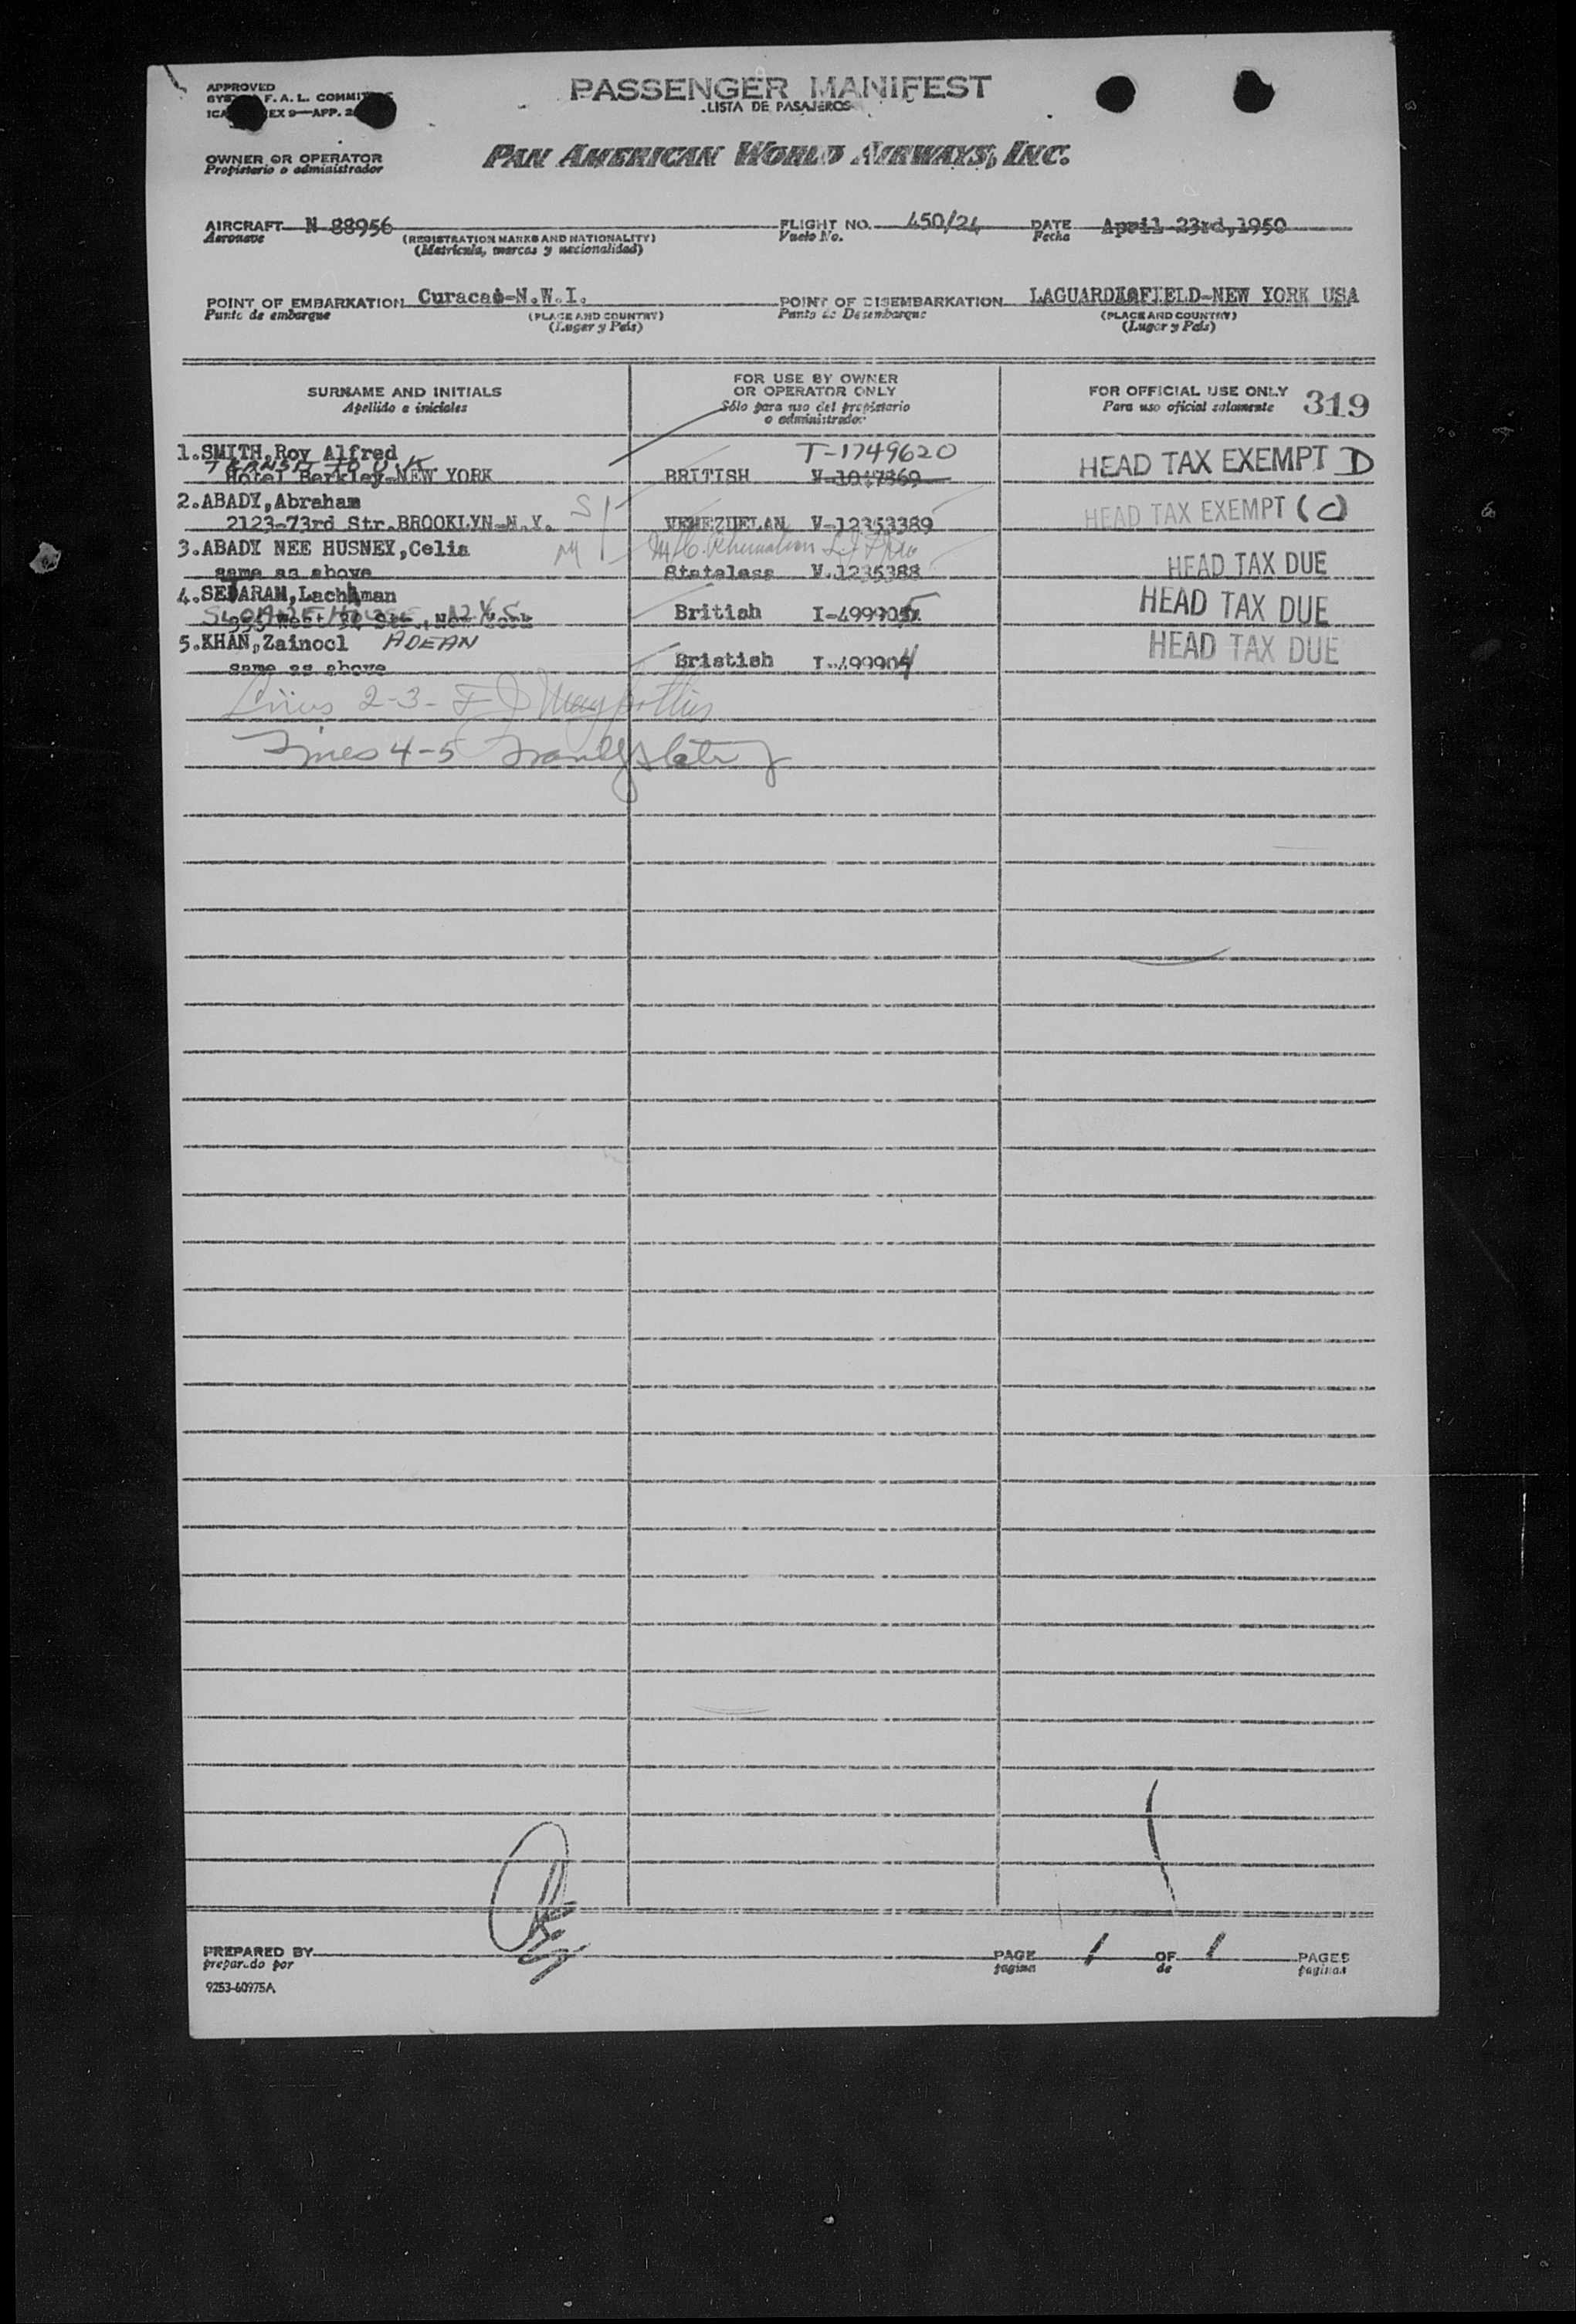 APPROVED
F. A. L. COMMITTEE
EX 9—APP. 2
PASSENGER MANIFEST
LISTA DE PASAJEROS
OWNER OR OPERATOR
Propietario o administrador
PAN AMERICAN WORLD AIRWAYS, INC.
AIRCRAFT N 88956 FLIGHT NO. 450/24 DATE April 23rd,1950
Aeronave (REGISTRATION MARKS AND NATIONALITY) Vuelo No. Fecha
(Matricula, marcas y nacionalidad)
POINT OF EMBARKATION Curacao-N.W.I. POINT OF DISEMBARKATION LAGUARDIAFIELD-NEW YORK USA
Punto de embarque (PLACE AND COUNTRY) Punto de Desembarque (PLACE AND COUNTRY)
(Lugar y País) (Lugar y País)
SURNAME AND INITIALS FOR USE BY OWNER OR OPERATOR ONLY FOR OFFICIAL USE ONLY 319
Apellido e iniciales Sólo para uso del propietario o administrador Para uso oficial solamente
1.SMITH,Roy Alfred T-1749620
TRANSIT TO U.K. HEAD TAX EXEMPT D
Hotel Berkley-NEW YORK BRITISH V-1047869
2.ABADY,Abraham S
2123-73rd Str.BROOKLYN-N.Y. VENEZUELAN V-12353389 HEAD TAX EXEMPT (C)
3.ABADY NEE HUSNEY,Celia M
same as above Stateless V.1235388 HEAD TAX DUE
4.SEDARAM,Lachhman
SLOANE HOUSE British I-499905 HEAD TAX DUE
5.KHAN,Zainool ADEAN
same as above Bristish I-499904 HEAD TAX DUE
Lines 2-3-
Lines 4-5
PREPARED BY PAGE 1 OF 1 PAGES
preparado por pagina de paginas
9253-60975A